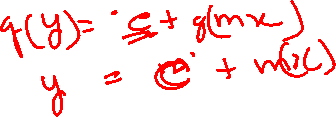 q(y) = c + g(mx)
y = c + m(x)